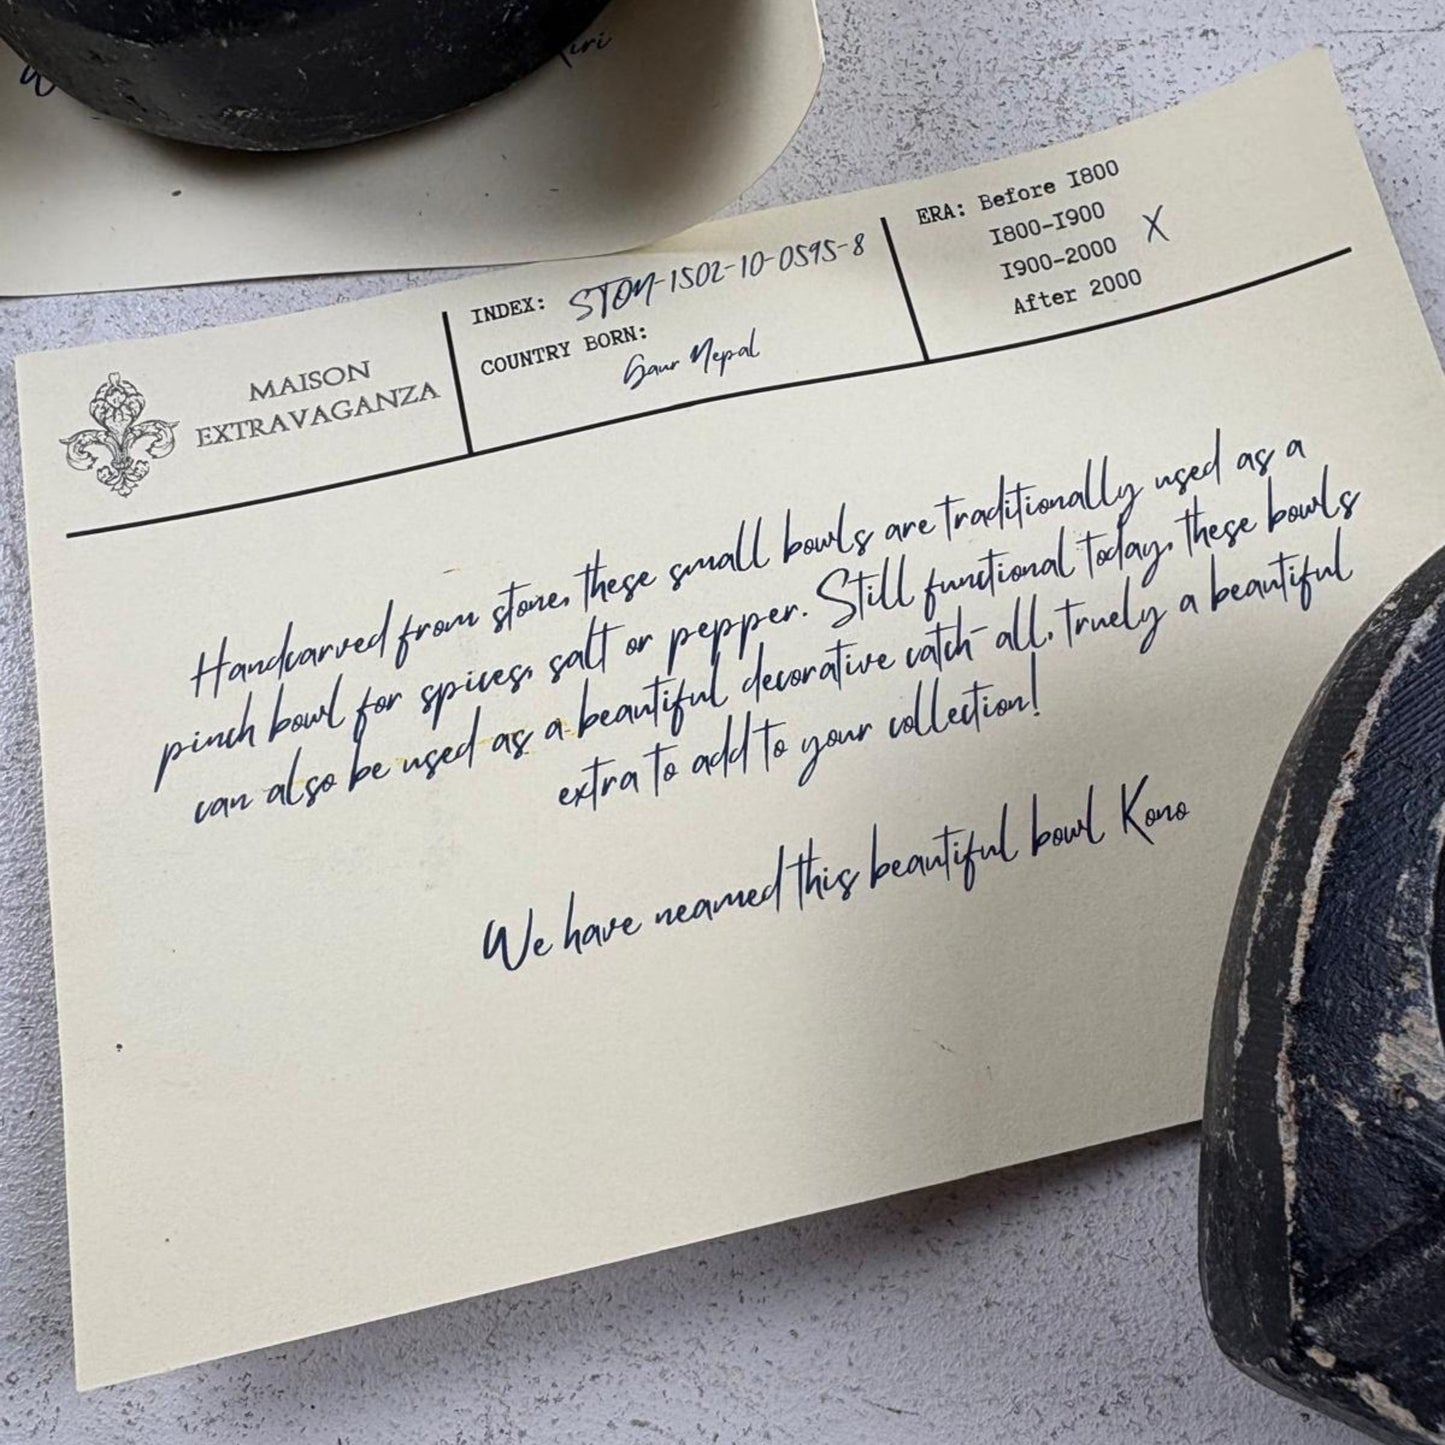 iri
MAISON
EXTRAVAGANZA
INDEX: STON-1502-10-0595-8
COUNTRY BORN:
Gaur Nepal
ERA: Before I800
I800-I900
I900-2000 X
After 2000
Handcarved from stone, these small bowls are traditionally used as a
pinch bowl for spices, salt or pepper. Still functional today, these bowls
can also be used as a beautiful decorative catch-all, truely a beautiful
extra to add to your collection!
We have neamed this beautiful bowl Kono